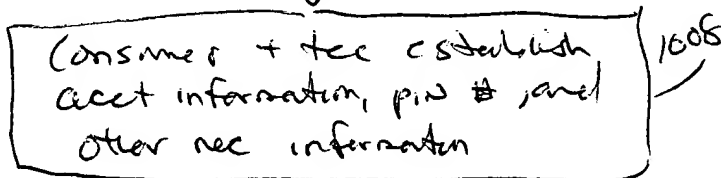 Consumer + tec establish
acct information, pin #, and
other nec information
1008